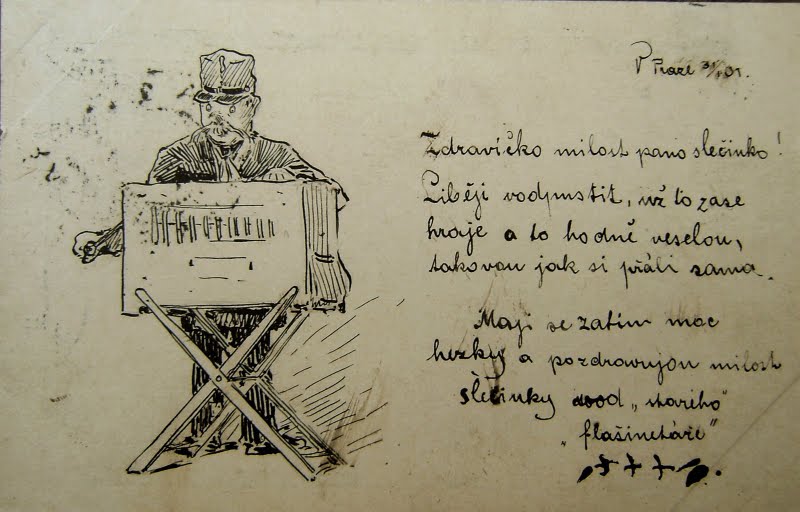 V Praze 3/1 01.
Zdravíčko milost pano slečinko!
Ciběji vodpustit, už to zase
hraje a to hodně veselou,
takovou jak si přáli sama.
Maji se zatim moc
hezky a pozdravujou milost
slečinky vod „starího"
„flašinetáře"
+++.